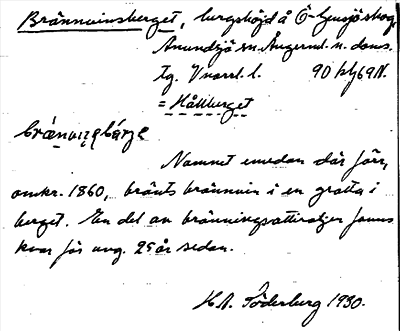 Brännvinsberget, bergshöjd å Ö. Gensjöskog,
Anundsjö sn. Ångerml. n. doms.
tg. Vnorrl. l. 90 kbl 69 N.
= Hållberget
Namnet emedan där förr,
omkr. 1860, bränts brännvin i en grotta i
berget. En del av bränningsattiraljer fanns
kvar för ung. 25 år sedan.
H.A. Söderberg 1930.